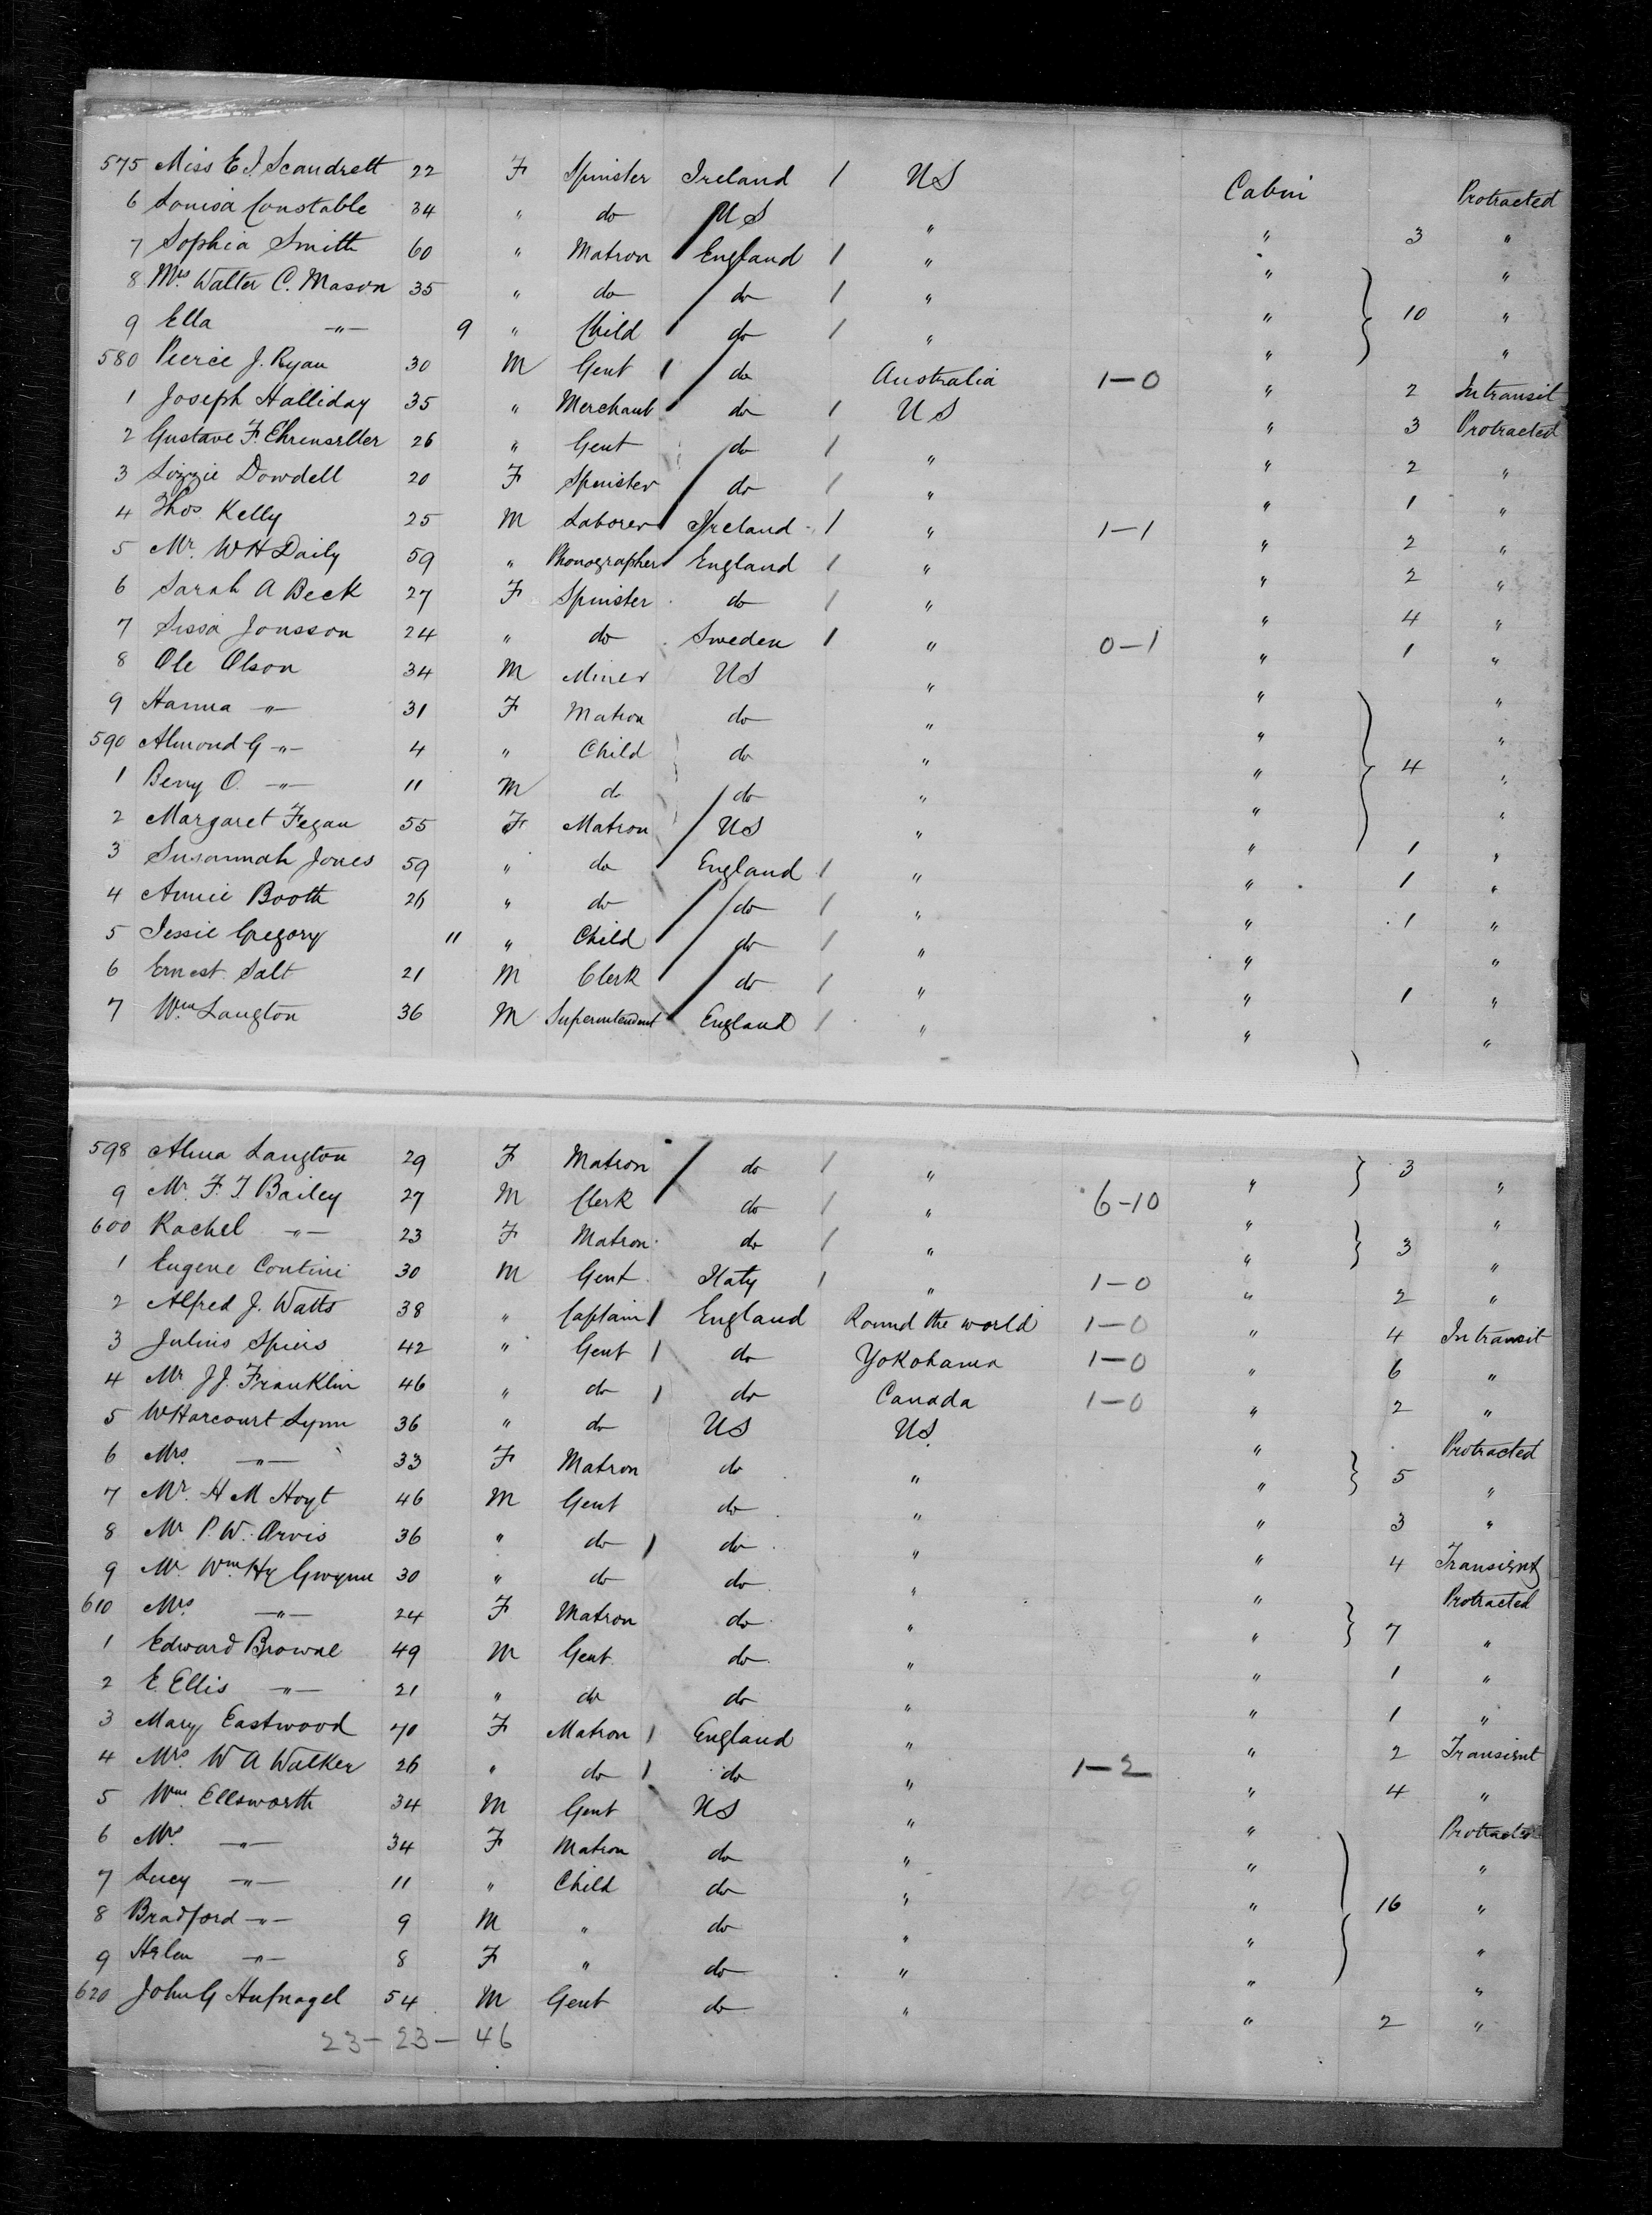 575 Miss E J. Scandrett 22 F Spinster Ireland 1 US Cabin Protracted
6 Louisa Constable 34 " do US " " 3 "
7 Sophia Smith 60 " Matron England 1 " " "
8 Mrs. Walter C. Mason 35 " do do 1 " " "
9 Ella -"- 9 " Child do 1 " " 10 "
580 Pierce J. Ryan 30 M Gent 1 do Australia 1-0 " 2 In transit
1 Joseph Halliday 35 " Merchant do 1 US " 3 Protracted
2 Gustave F. 26 " Gent do 1 " " 2 "
3 Lizzie Dowdell 20 F Spinster do 1 " " 1 "
4 Thos. Kelly 25 M Laborer Ireland 1 " 1-1 " 2 "
5 Mr. W H Daily 59 " Phonographer England 1 " " 2 "
6 Sarah A Beck 27 F Spinster do 1 " " 4 "
7 Sissa Jonsson 24 " do Sweden 1 " 0-1 " 1 "
8 Ole Olson 34 M Miner US " " "
9 Hanna -"- 31 F Matron do " " "
590 Almond G -"- 4 " Child do " " 4 "
1 Beny O. -"- 11 M do do " " "
2 Margaret Fegan 55 F Matron US " " 1 "
3 Susannah Jones 59 " do England 1 " " 1 "
4 Annie Booth 26 " do do 1 " " 1 "
5 Jessie Gregory 11 " Child do 1 " " "
6 Ernest Salt 21 M Clerk do 1 " " 1 "
7 Wm Langton 36 M Superintendent England 1 " " "
598 Alma Langton 29 F Matron do 1 " " 3 "
9 Mr. F. T. Bailey 27 M Clerk do 1 " 6-10 " "
600 Rachel -"- 23 F Matron do 1 " " 3 "
1 Eugene Contini 30 M Gent Italy 1 " 1-0 " 2 "
2 Alfred J. Watts 38 " Captain 1 England Round the world 1-0 " 4 In transit
3 Julius Spiers 42 " Gent 1 do Yokohama 1-0 " 6 "
4 Mr J J. Franklin 46 " do 1 do Canada 1-0 " 2 "
5 W Harcourt Lynn 36 " do US US " Protracted
6 Mrs. -"- 33 F Matron do " " 5 "
7 Mr. H M Hoyt 46 M Gent do " " 3 "
8 Mr P. W. Orvis 36 " do 1 do " " 4 Transient
9 Mr. Wm Hy Gwynn 30 " do do " " Protracted
610 Mrs. -"- 24 F Matron do " " 7 "
1 Edward Browne 49 M Gent do " " 1 "
2 E. Ellis -"- 21 " do do " " 1 "
3 Mary Eastwood 40 F Matron 1 England " " 2 Transient
4 Mrs. W A Walker 26 " do 1 do " 1-2 " 4 "
5 Wm Ellsworth 34 M Gent US " " Protracted
6 Mrs. -"- 34 F Matron do " " "
7 Lucy -"- 11 " Child do " " 16 "
8 Bradford -"- 9 M " do " " "
9 Helen -"- 8 F " do " " "
620 John G Hufnagel 54 M Gent do " " 2 "
23-23-46